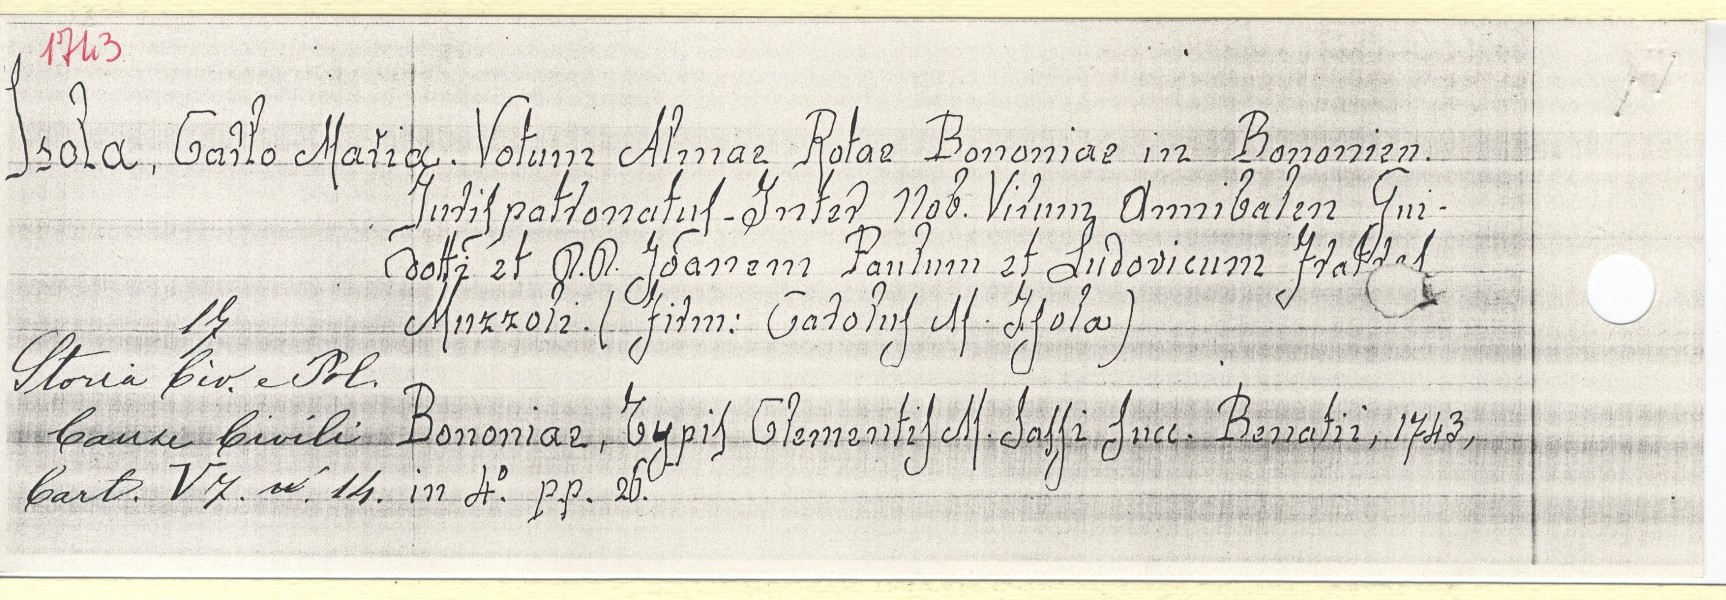 1743
Isola, Carlo Maria. Votum Almae Rotae Bononiae in Bononien.
Jurispatronatus - Inter Nob. Virum Annibalen Gui-
dotti et R.R. Joanem Paulum et Ludovicum Fratres
17 Muzzoli. (Firm: Carolus M. Isola)
Storia Civ. e Pol.
Cause Civili Bononiae, Typis Clementis M. Sassi Succ. Benatii, 1743,
Cart. V7. n. 14. in 4º. pp. 26.